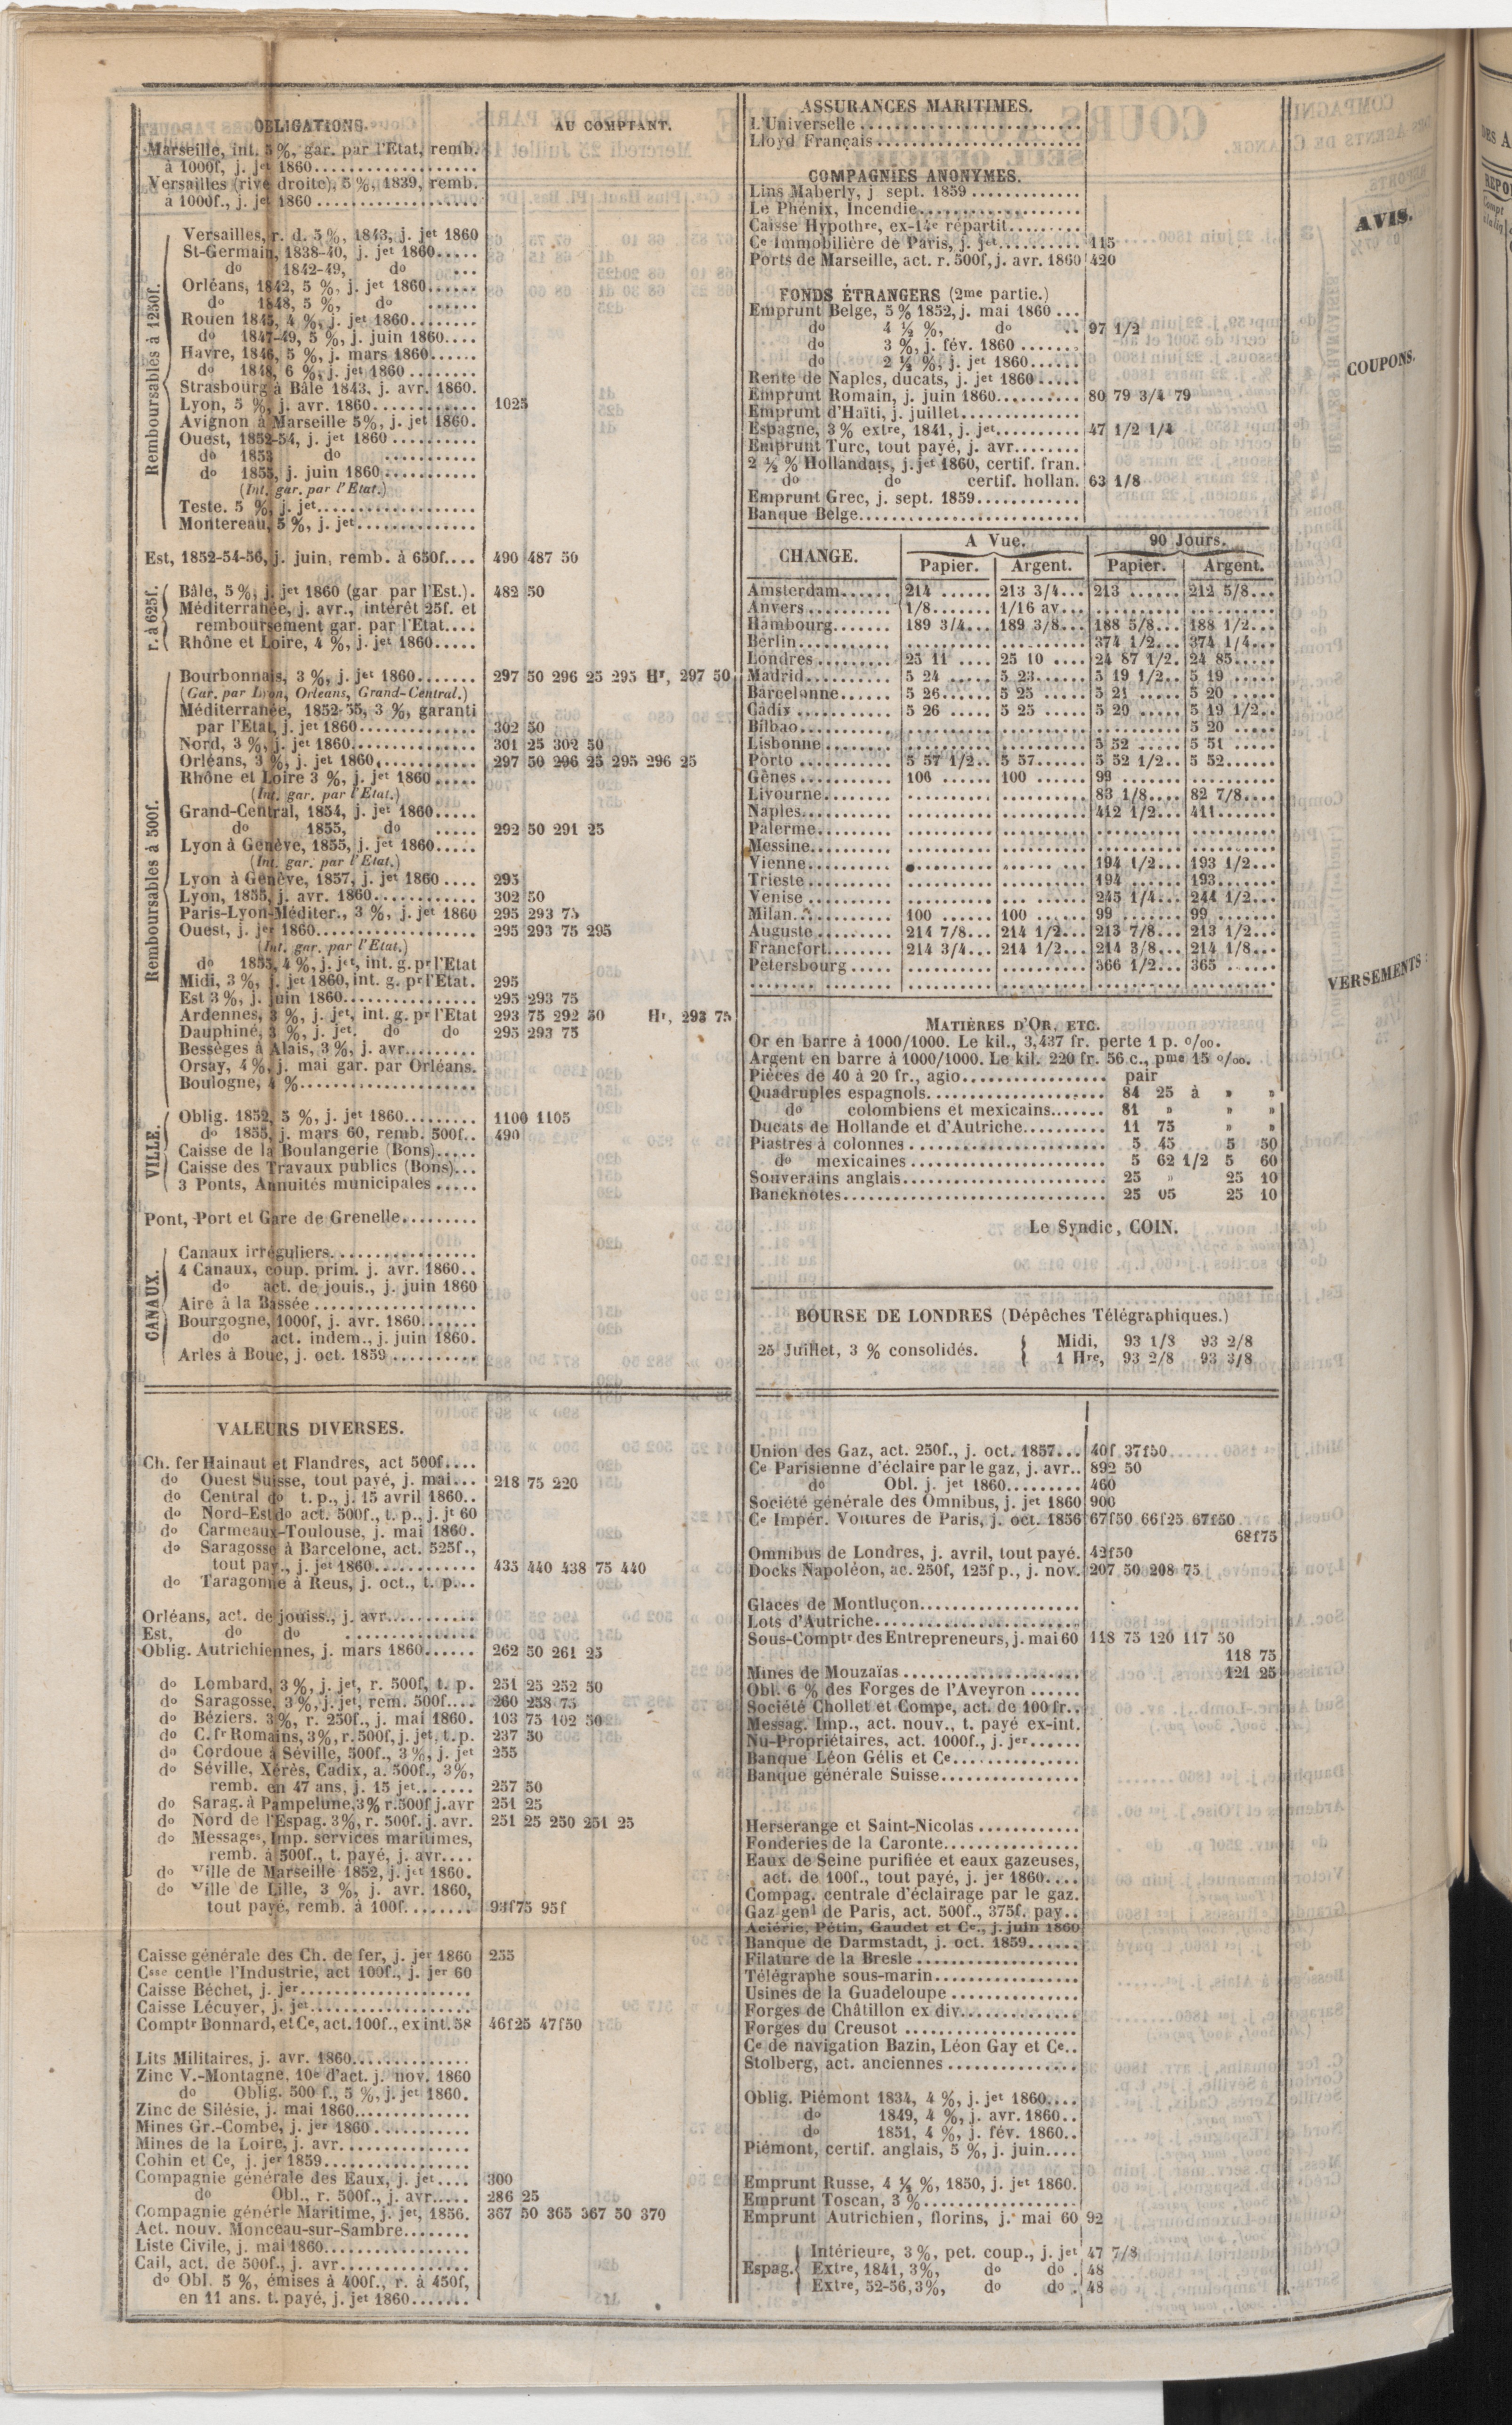 OBLIGATIONS.
AU COMPTANT.
Marseille, int. 5 %, gar. par l'Etat, remb.
à 1000f, j. jet 1860
Versailles (rive droite), 5 %, 1839, remb.
à 1000f., j. jet 1860
Remboursables à 1250f.
Versailles, r. d. 5 %, 1843, j. jet 1860
St-Germain, 1838-40, j. jet 1860
do 1842-49, do
Orléans, 1842, 5 %, j. jet 1860
do 1848, 5 %, do
Rouen 1845, 4 %, j. jet 1860
do 1847-49, 5 %, j. juin 1860
Havre, 1846, 5 %, j. mars 1860
do 1848, 6 %, j. jet 1860
Strasbourg à Bâle 1843, j. avr. 1860.
Lyon, 5 %, j. avr. 1860 1025
Avignon à Marseille 5%, j. jet 1860.
Ouest, 1852-54, j. jet 1860
do 1853 do
do 1855, j. juin 1860
(Int. gar. par l'Etat.)
Teste. 5 %, j. jet
Montereau, 5 %, j. jet
Est, 1852-54-56, j. juin, remb. à 650f. 490 487 50
r. à 625f.
Bâle, 5 %, j. jet 1860 (gar par l'Est.). 482 50
Méditerranée, j. avr., intérêt 25f. et
remboursement gar. par l'Etat
Rhône et Loire, 4 %, j. jet 1860
Remboursables à 500f.
Bourbonnais, 3 %, j. jet 1860 297 50 296 25 295 Hr, 297 50
(Gar. par Lyon, Orleans, Grand-Central.)
Méditerranée, 1852-55, 3 %, garanti
par l'Etat, j. jet 1860 302 50
Nord, 3 %, j. jet 1860 301 25 302 50
Orléans, 3 %, j. jet 1860 297 50 296 25 295 296 25
Rhône et Loire 3 %, j. jet 1860
(Int. gar. par l'Etat.)
Grand-Central, 1854, j. jet 1860
do 1855, do 292 50 291 25
Lyon à Genève, 1855, j. jet 1860
(Int. gar. par l'Etat.)
Lyon à Genève, 1857, j. jet 1860 295
Lyon, 1855, j. avr. 1860 302 50
Paris-Lyon-Méditer., 3 %, j. jet 1860 295 293 75
Ouest, j. jer 1860 295 293 75 295
(Int. gar. par l'Etat.)
do 1855, 4 %, j. jet, int. g. pr l'Etat
Midi, 3 %, j. jet 1860, int. g. pr l'Etat. 295
Est 3 %, j. juin 1860 295 293 75
Ardennes, 3 %, j. jet, int. g. pr l'Etat 293 75 292 50 Hr, 293 75
Dauphiné, 3 %, j. jet. do do 295 293 75
Bessèges à Alais, 3 %, j. avr.
Orsay, 4 %, j. mai gar. par Orléans.
Boulogne, 4 %
VILLE.
Oblig. 1852, 5 %, j. jet 1860 1100 1105
do 1855, j. mars 60, remb. 500f. 490
Caisse de la Boulangerie (Bons)
Caisse des Travaux publics (Bons)
3 Ponts, Annuités municipales
Pont, Port et Gare de Grenelle
CANAUX.
Canaux irréguliers
4 Canaux, coup. prim. j. avr. 1860
do act. de jouis., j. juin 1860
Aire à la Bassée
Bourgogne, 1000f, j. avr. 1860
do act. indem., j. juin 1860.
Arles à Bouc, j. oct. 1859
VALEURS DIVERSES.
Ch. fer Hainaut et Flandres, act 500f.
do Ouest Suisse, tout payé, j. mai 218 75 220
do Central do t. p., j. 15 avril 1860
do Nord-Est do act. 500f., t. p., j. jt 60
do Carmeaux-Toulouse, j. mai 1860.
do Saragosse à Barcelone, act. 525f.,
tout pay., j. jet 1860 435 440 438 75 440
do Taragonne à Reus, j. oct., t. p.
Orléans, act. de jouiss., j. avr.
Est, do do
Oblig. Autrichiennes, j. mars 1860 262 50 261 25
do Lombard, 3 %, j. jet, r. 500f, t. p. 251 25 252 50
do Saragosse, 3 %, j. jet, rem. 500f. 260 258 75
do Béziers. 3 %, r. 250f., j. mai 1860. 103 75 102 50
do C. fr Romains, 3%, r. 500f, j. jet, t. p. 237 50
do Cordoue à Séville, 500f., 3 %, j. jet 255
do Séville, Xérès, Cadix, a. 500f., 3%,
remb. en 47 ans, j. 15 jet 257 50
do Sarag. à Pampelune, 3% r. 500f j. avr 251 25
do Nord de l'Espag. 3%, r. 500f. j. avr. 251 25 250 251 25
do Messages, Imp. services maritimes,
remb. à 500f., t. payé, j. avr.
do Ville de Marseille 1852, j. jet 1860.
do Ville de Lille, 3 %, j. avr. 1860,
tout payé, remb. à 100f. 93f75 95f
Caisse générale des Ch. de fer, j. jer 1860 255
Csse centle l'Industrie, act 100f., j. jer 60
Caisse Béchet, j. jer
Caisse Lécuyer, j. jet
Comptr Bonnard, et Ce, act. 100f., ex int. 58 46f25 47f50
Lits Militaires, j. avr. 1860
Zinc V.-Montagne, 10e d'act. j. nov. 1860
do Oblig. 500 f., 5 %, j. jet 1860.
Zinc de Silésie, j. mai 1860
Mines Gr.-Combe, j. jer 1860
Mines de la Loire, j. avr.
Cohin et Ce, j. jer 1859
Compagnie générale des Eaux, j. jet 300
do Obl., r. 500f., j. avr. 286 25
Compagnie générle Maritime, j. jet, 1856. 367 50 365 367 50 370
Act. nouv. Monceau-sur-Sambre
Liste Civile, j. mai 1860
Cail, act. de 500f., j. avr.
do Obl. 5 %, émises à 400f., r. à 450f,
en 11 ans. t. payé, j. jet 1860
ASSURANCES MARITIMES.
L'Universelle
Lloyd Français
COMPAGNIES ANONYMES.
Lins Maberly, j sept. 1859
Le Phénix, Incendie
Caisse Hypothre, ex-14e répartit.
Ce Immobilière de Paris, j. jet 115
Ports de Marseille, act. r. 500f, j. avr. 1860 420
FONDS ÉTRANGERS (2me partie.)
Emprunt Belge, 5 % 1852, j. mai 1860
do 4 ½ %, do 97 1/2
do 3 %, j. fév. 1860
do 2 ½ %, j. jet 1860
Rente de Naples, ducats, j. jet 1860
Emprunt Romain, j. juin 1860 80 79 3/4 79
Emprunt d'Haïti, j. juillet
Espagne, 3 % extre, 1841, j. jet 47 1/2 1/4
Emprunt Turc, tout payé, j. avr.
2 ½ % Hollandais, j. jet 1860, certif. fran.
do do certif. hollan. 63 1/8
Emprunt Grec, j. sept. 1859
Banque Belge
CHANGE. A Vue. 90 Jours.
Papier. Argent. Papier. Argent.
Amsterdam 214 213 3/4 213 212 5/8
Anvers 1/8 1/16 av
Hambourg 189 3/4 189 3/8 188 5/8 188 1/2
Berlin 374 1/2 374 1/4
Londres 25 11 25 10 24 87 1/2. 24 85
Madrid 5 24 5 23 5 19 1/2 5 19
Barcelonne 5 26 5 25 5 21 5 20
Cadix 5 26 5 25 5 20 5 19 1/2
Bilbao 5 20
Lisbonne 5 52 5 51
Porto 5 57 1/2 5 57 5 52 1/2 5 52
Gênes 100 100 99
Livourne 83 1/8 82 7/8
Naples 412 1/2 411
Palerme
Messine
Vienne 194 1/2 193 1/2
Trieste 194 193
Venise 245 1/4 244 1/2
Milan 100 100 99 99
Auguste 214 7/8 214 1/2 213 7/8 213 1/2
Francfort 214 3/4 214 1/2 214 3/8 214 1/8
Pétersbourg 366 1/2 365
MATIÈRES D'OR, ETC.
Or en barre à 1000/1000. Le kil., 3,437 fr. perte 1 p. o/oo.
Argent en barre à 1000/1000. Le kil. 220 fr. 56 c., pme 15 o/oo.
Pièces de 40 à 20 fr., agio pair
Quadruples espagnols 84 25 à » »
do colombiens et mexicains 81 » » »
Ducats de Hollande et d'Autriche 11 75 » »
Piastres à colonnes 5 45 5 50
do mexicaines 5 62 1/2 5 60
Souverains anglais 25 » 25 10
Bancknotes 25 05 25 10
Le Syndic, COIN.
BOURSE DE LONDRES (Dépêches Télégraphiques.)
25 Juillet, 3 % consolidés. Midi, 93 1/8 93 2/8
1 Hre, 93 2/8 93 3/8
Union des Gaz, act. 250f., j. oct. 1857 40f 37f50
Ce Parisienne d'éclaire par le gaz, j. avr. 892 50
do Obl. j. jet 1860 460
Société générale des Omnibus, j. jet 1860 900
Ce Impér. Voitures de Paris, j. oct. 1856 67f50 66f25 67f50
68f75
Omnibus de Londres, j. avril, tout payé. 42f50
Docks Napoléon, ac. 250f, 125f p., j. nov. 207 50 208 75
Glaces de Montluçon
Lots d'Autriche
Sous-Comptr des Entrepreneurs, j. mai 60 118 75 120 117 50
118 75
Mines de Mouzaïas 121 25
Obl. 6 % des Forges de l'Aveyron
Société Chollet et Compe, act. de 100 fr.
Messag. Imp., act. nouv., t. payé ex-int.
Nu-Propriétaires, act. 1000f., j. jer
Banque Léon Gélis et Ce
Banque générale Suisse
Herserange et Saint-Nicolas
Fonderies de la Caronte
Eaux de Seine purifiée et eaux gazeuses,
act. de 100f., tout payé, j. jer 1860
Compag. centrale d'éclairage par le gaz.
Gaz genl de Paris, act. 500f., 375f. pay.
Aciérie, Pétin, Gaudet et Ce., j. juin 1860
Banque de Darmstadt, j. oct. 1859
Filature de la Bresle
Télégraphe sous-marin
Usines de la Guadeloupe
Forges de Châtillon ex div.
Forges du Creusot
Ce de navigation Bazin, Léon Gay et Ce
Stolberg, act. anciennes
Oblig. Piémont 1834, 4 %, j. jet 1860
do 1849, 4 %, j. avr. 1860
do 1851, 4 %, j. fév. 1860
Piémont, certif. anglais, 5 %, j. juin
Emprunt Russe, 4 ½ %, 1850, j. jet 1860.
Emprunt Toscan, 3 %
Emprunt Autrichien, florins, j. mai 60 92
Espag.
Intérieure, 3 %, pet. coup., j. jet 47 7/8
Extre, 1841, 3%, do do 48
Extre, 52-56, 3%, do do 48
AVIS.
COUPONS.
VERSEMENTS :